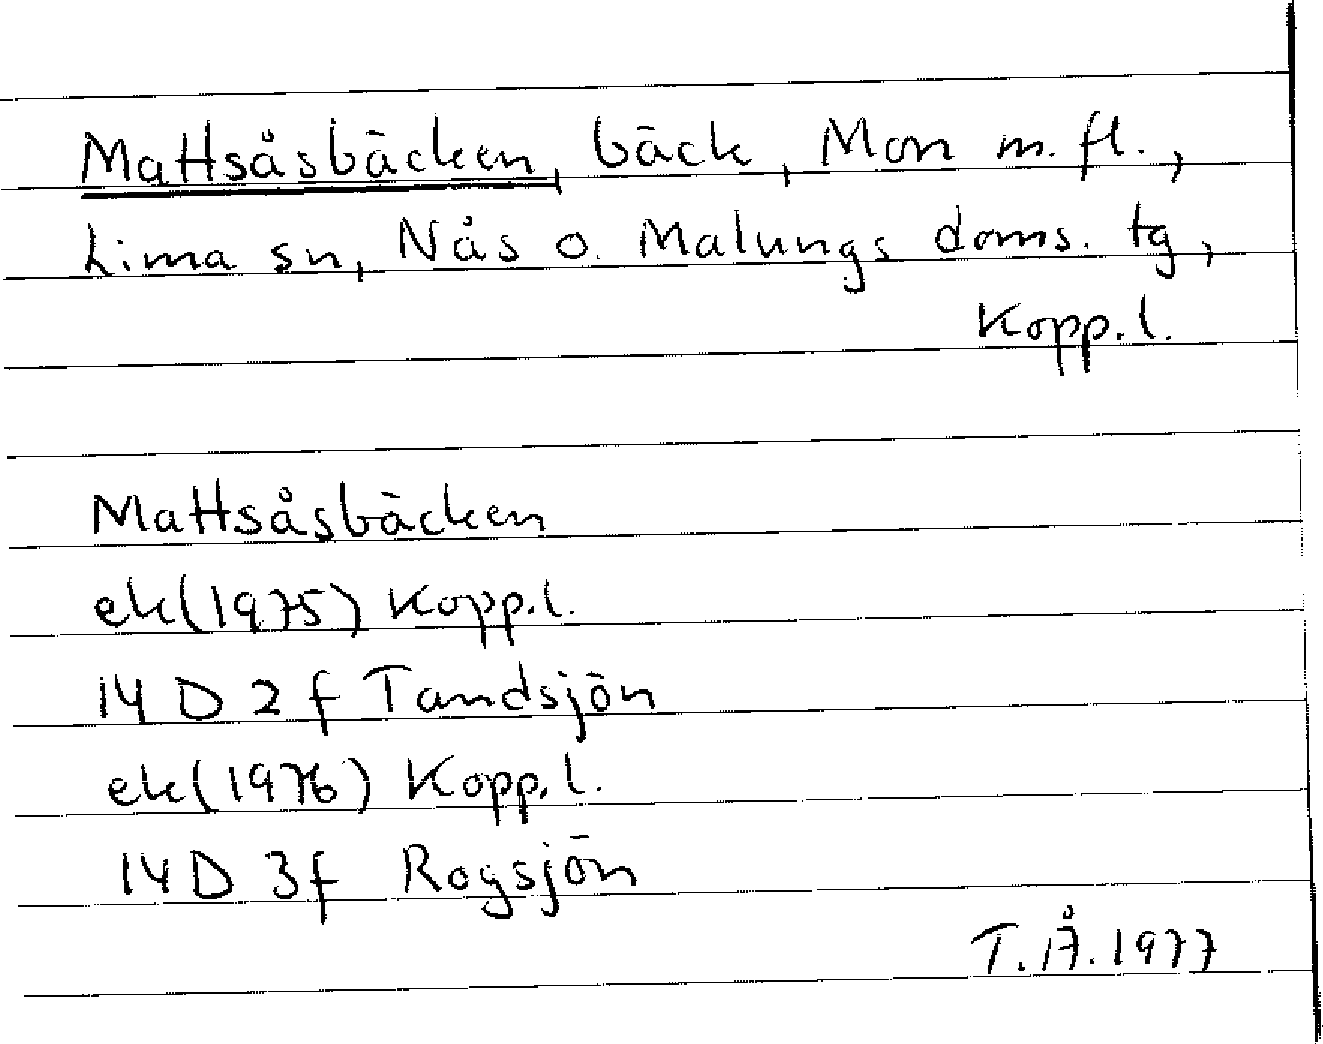 Mattsåsbäcken, bäck, Mon m. fl.,
Lima sn, Nås o. Malungs doms. tg,
Kopp. l.
Mattsåsbäcken
ek (1975) Kopp. l.
14 D 2 f Tandsjön
ek (1976) Kopp. l.
14 D 3f Rogsjön
T. Å. 1977